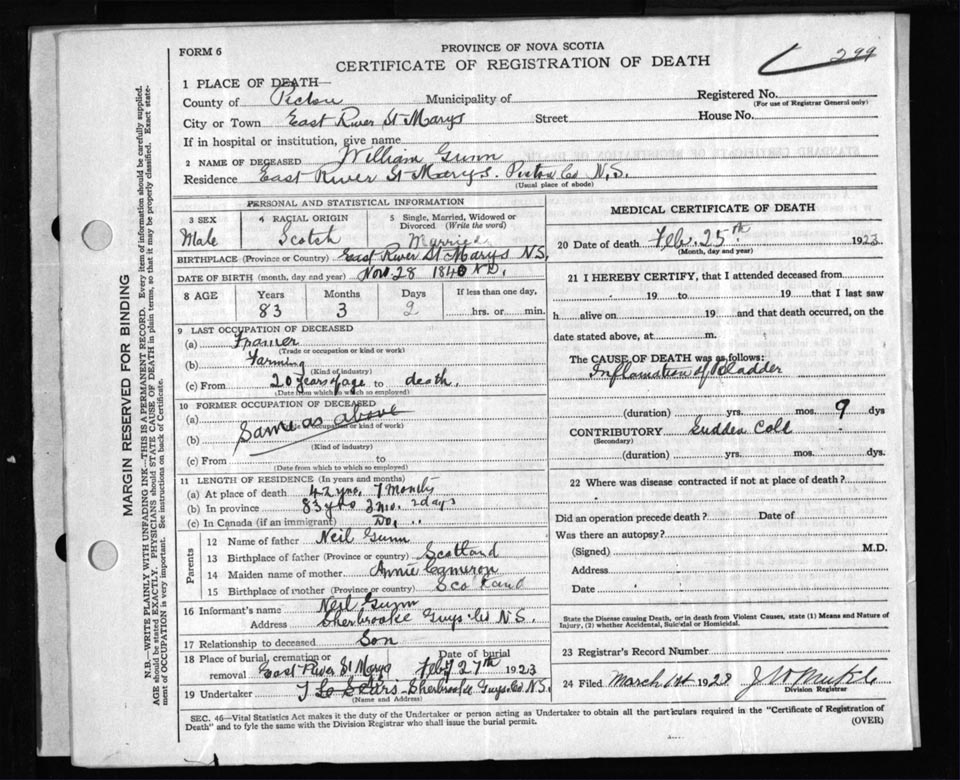 FORM 6
PROVINCE OF NOVA SCOTIA
CERTIFICATE OF REGISTRATION OF DEATH
299
1 PLACE OF DEATH
County of Pictou Municipality of
Registered No.
(For use of Registrar General only)
City or Town East River St Marys Street House No.
If in hospital or institution, give name
2 NAME OF DECEASED William Gunn
Residence East River St Marys. Pictou Co N.S.
(Usual place of abode)
PERSONAL AND STATISTICAL INFORMATION
3 SEX
Male
4 RACIAL ORIGIN
Scotch
5 Single, Married, Widowed or Divorced (Write the word)
Married
BIRTHPLACE (Province or Country) East River St Marys N.S.
DATE OF BIRTH (month, day and year) Nov 28 1840
8 AGE
Years 83
Months 3
Days 2
If less than one day,
hrs. or min.
9 LAST OCCUPATION OF DECEASED
(a) Framer
(Trade or occupation or kind or work)
(b) Farming
(Kind of industry)
(c) From 20 years of age to death.
(Date from which to which so employed)
10 FORMER OCCUPATION OF DECEASED
(a) Same as above
(b)
(Kind of industry)
(c) From to
(Date from which to which so employed)
11 LENGTH OF RESIDENCE (In years and months)
(a) At place of death 42 yrs. 7 Months
(b) In province 83 yrs 3 mo. 2 days
(c) In Canada (if an immigrant) Do. " "
Parents
12 Name of father Neil Gunn
13 Birthplace of father (Province or country) Scotland
14 Maiden name of mother Annie Cameron
15 Birthplace of mother (Province or country) Scotland
16 Informant's name Neil Gunn
Address Sherbrooke Guys Co N.S.
17 Relationship to deceased Son
18 Place of burial, cremation or removal East River St Marys
Date of burial Feby 27th 1923
19 Undertaker Sherbrooke Guys Co N.S.
(Name and Address)
MEDICAL CERTIFICATE OF DEATH
20 Date of death Feb. 25th 1923
(Month, day and year)
21 I HEREBY CERTIFY, that I attended deceased from
19 to 19 that I last saw
h alive on 19 and that death occurred, on the
date stated above, at m.
The CAUSE OF DEATH was as follows:
Inflamation of Bladder
(duration) yrs. mos. 9 dys
CONTRIBUTORY Sudden Cold
(Secondary)
(duration) yrs. mos. dys.
22 Where was disease contracted if not at place of death?
Did an operation precede death? Date of
Was there an autopsy?
(Signed) M.D.
Address
Date
State the Disease causing Death, or in death from Violent Causes, state (1) Means and Nature of
Injury, (2) whether Accidental, Suicidal or Homicidal.
23 Registrar's Record Number
24 Filed March 1st 1923
Division Registrar
SEC. 46—Vital Statistics Act makes it the duty of the Undertaker or person acting as Undertaker to obtain all the particulars required in the "Certificate of Registration of
Death" and to fyle the same with the Division Registrar who shall issue the burial permit.
(OVER)
MARGIN RESERVED FOR BINDING
N.B.—WRITE PLAINLY WITH UNFADING INK—THIS IS A PERMANENT RECORD. Every item of information should be carefully supplied.
AGE should be stated EXACTLY. PHYSICIANS should STATE CAUSE OF DEATH in plain terms, so that it may be properly classified. Exact statement of OCCUPATION is very important. See instructions on back of Certificate.